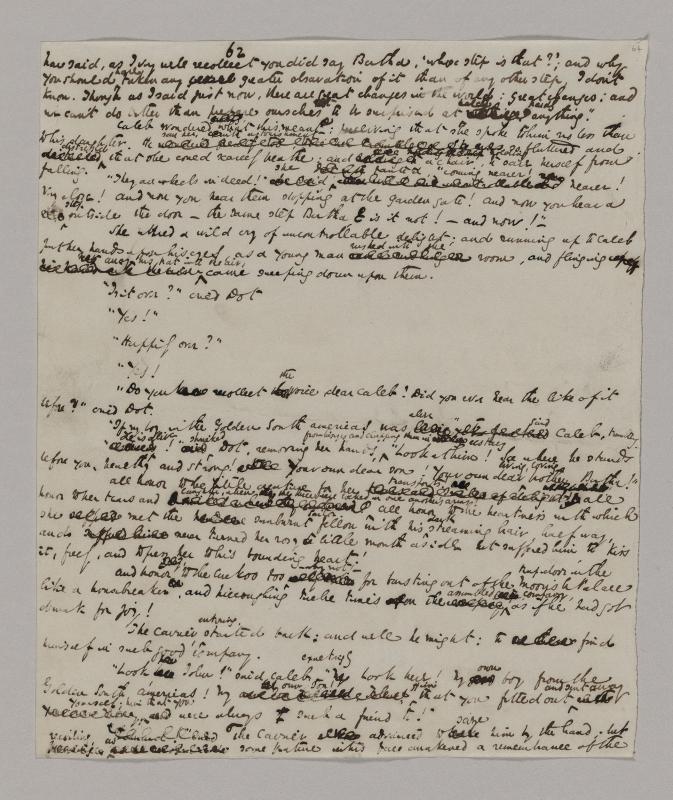 62
have said, as I very well recollect you did say Bertha, "whose step is that?"; and why
you should have taken any greater observation of it than of any other step, I don't
know. Though as I said just now, there are great changes in the world: great changes: and
we can't do better than prepare ourselves to be surprised at hardly anything."
Caleb wondered what this meant; perceiving that she spoke to him no less than
to his daughter. He saw her, with astonishment, so fluttered and
distressed that she could scarcely breathe; and holding to a chair, to save herself from
falling.
"They are wheels indeed!" she panted "coming nearer! nearer!
Very close! And now you hear them stopping at the garden gate! And now you hear a
step outside the door – the same step Bertha is it not! – and now!" –
She uttered a wild cry of uncontrollable delight; and running up to Caleb
put her hands upon his eyes, as a young man rushed into the room, and flinging
away his hat into the air, came sweeping down upon them.
"Is it over?" cried Dot
"Yes!"
"Happily over?"
"Yes!
"Do you recollect the voice dear Caleb? Did you ever hear the like of it
before?" cried Dot.
"If my boy in the Golden South Americas was alive" said Caleb, trembling,
"He is alive!" shrieked Dot, removing her hands from his eyes and clapping them in ecstasy; "Look at him! See where he stands
before you, healthy and strong! Your own dear son! Your own dear living, loving brother Bertha!"
All honor to the little creature for her transports! All
honor to her tears and laughter, when the three were locked in one another's arms! All honor to the heartiness with which
she met the sunburnt sailor fellow with his streaming hair, half way,
and never turned her rosy little mouth aside but suffered him to kiss
it, freely, and to press her to his bounding heart!
And honor to the Cuckoo too – why not! – for bursting out of the trap-door in the Moorish Palace
like a housebreaker, and hiccoughing twelve times on the assembled company, as if he had got
drunk for joy!
The Carrier entering, started back; and well he might: to find
himself in such good company.
"Look John!" said Caleb exultingly "look here! My own boy from the
Golden South Americas! My own son! Him that you fitted out and sent away
yourself; him that you were always such a friend to!"
The Carrier advanced to seize him by the hand; but
recoiling, as some feature in his face awakened a remembrance of the